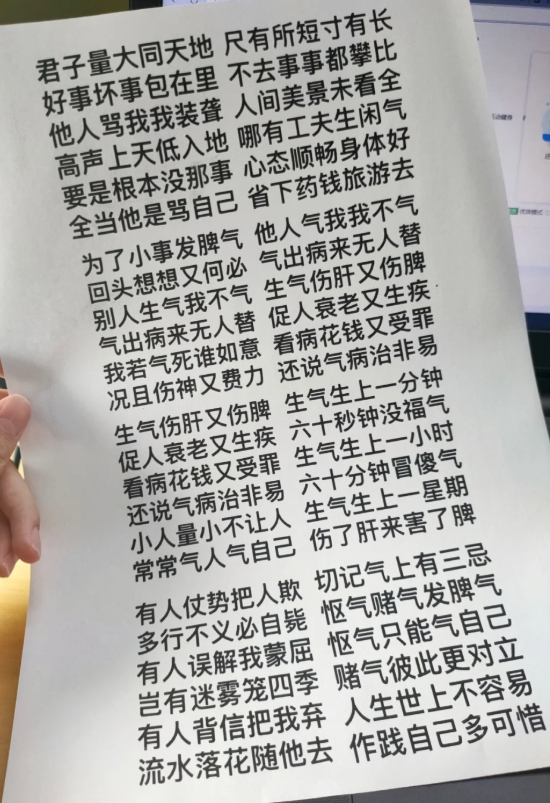 君子量大同天地 尺有所短寸有长
好事坏事包在里 不去事事都攀比
他人骂我我装聋 人间美景未看全
高声上天低入地 哪有工夫生闲气
要是根本没那事 心态顺畅身体好
全当他是骂自己 省下药钱旅游去
为了小事发脾气 他人气我我不气
回头想想又何必 气出病来无人替
别人生气我不气 生气伤肝又伤脾
气出病来无人替 促人衰老又生疾
我若气死谁如意 看病花钱又受罪
况且伤神又费力 还说气病治非易
生气伤肝又伤脾 生气生上一分钟
促人衰老又生疾 六十秒钟没福气
看病花钱又受罪 生气生上一小时
还说气病治非易 六十分钟冒傻气
小人量小不让人 生气生上一星期
常常气人气自己 伤了肝来害了脾
有人仗势把人欺 切记气上有三忌
多行不义必自毙 怄气赌气发脾气
有人误解我蒙屈 怄气只能气自己
岂有迷雾笼四季 赌气彼此更对立
有人背信把我弃 人生世上不容易
流水落花随他去 作践自己多可惜